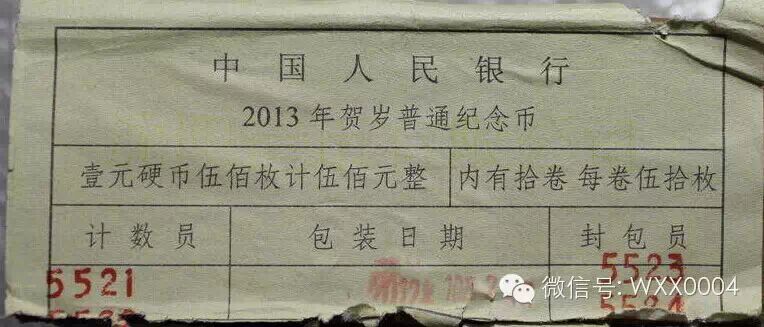 中国人民银行
2013年贺岁普通纪念币
壹元硬币伍佰枚计伍佰元整 内有拾卷 每卷伍拾枚
计数员 包装日期 封包员
5521 5523
5524
微信号: WXX0004